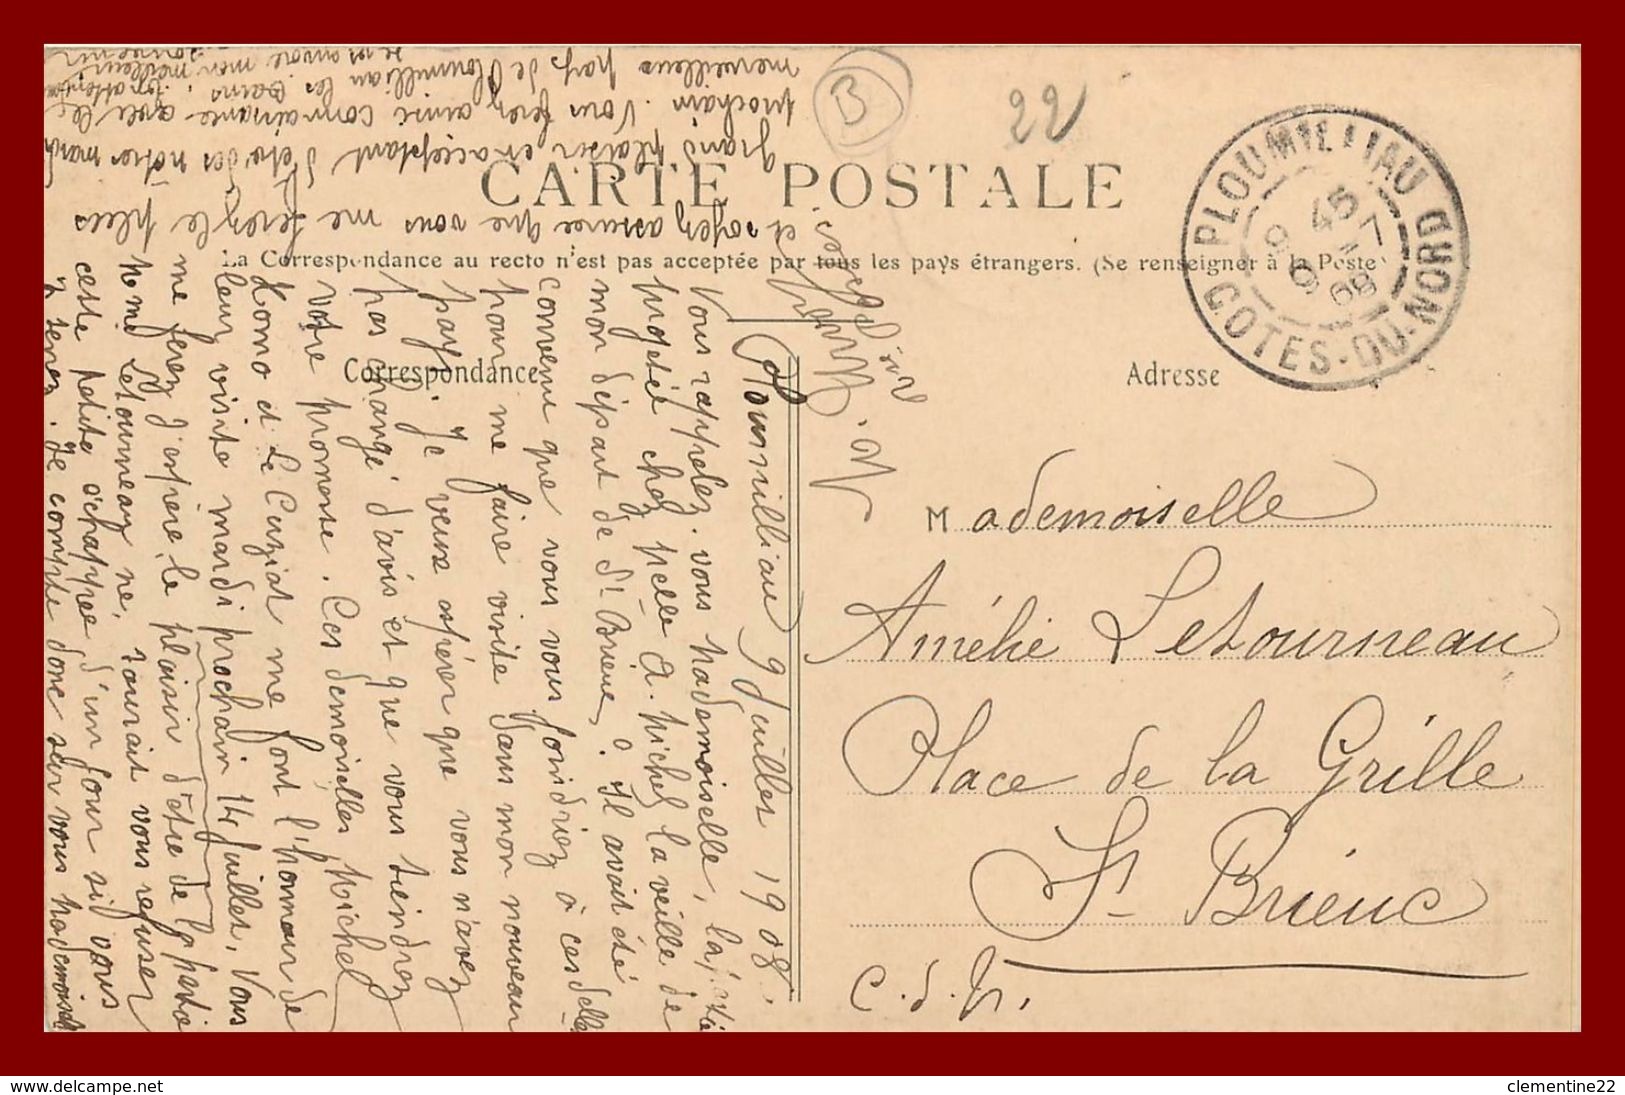 CARTE POSTALE
La Correspondance au recto n'est pas acceptée par tous les pays étrangers. (Se renseigner à la Poste
Correspondance
Adresse
PLOUMILLIAU (NORD)
COTES-DU-NORD
B
22
Mademoiselle
Amélie Letourneau
Place de la Grille
St Brieuc
C. d. N.
Ploumilliau 9 Juillet 1908.
Vous rappelez-vous Mademoiselle, la
projeté chez Melle A. Michel la veille de
mon départ de St Brieuc ? Il avait été
convenu que vous vous joindriez à ces delles
pour me faire visite dans mon nouveau
pays. Je veux espérer que vous n'avez
pas changé d'avis et que vous tiendrez
votre promesse. Ces demoiselles Michel
et Le Cuziat me font l'honneur de
leur visite mardi prochain 14 Juillet. Vous
me ferez j'espère le plaisir d'être de la partie
Mme Letourneau ne saurait vous refuser
cette petite échappée d'un jour si vous
y tenez. Je compte donc sur vous Mademoiselle
et soyez assurée que vous me ferez le plus
grand plaisir en acceptant d'être des nôtres mardi
prochain. Vous ferez ainsi connaissance avec le
merveilleux pays de Ploumilliau les bains.
je vs envoie mon meilleur
souvenir
delcampe.net
clementine22